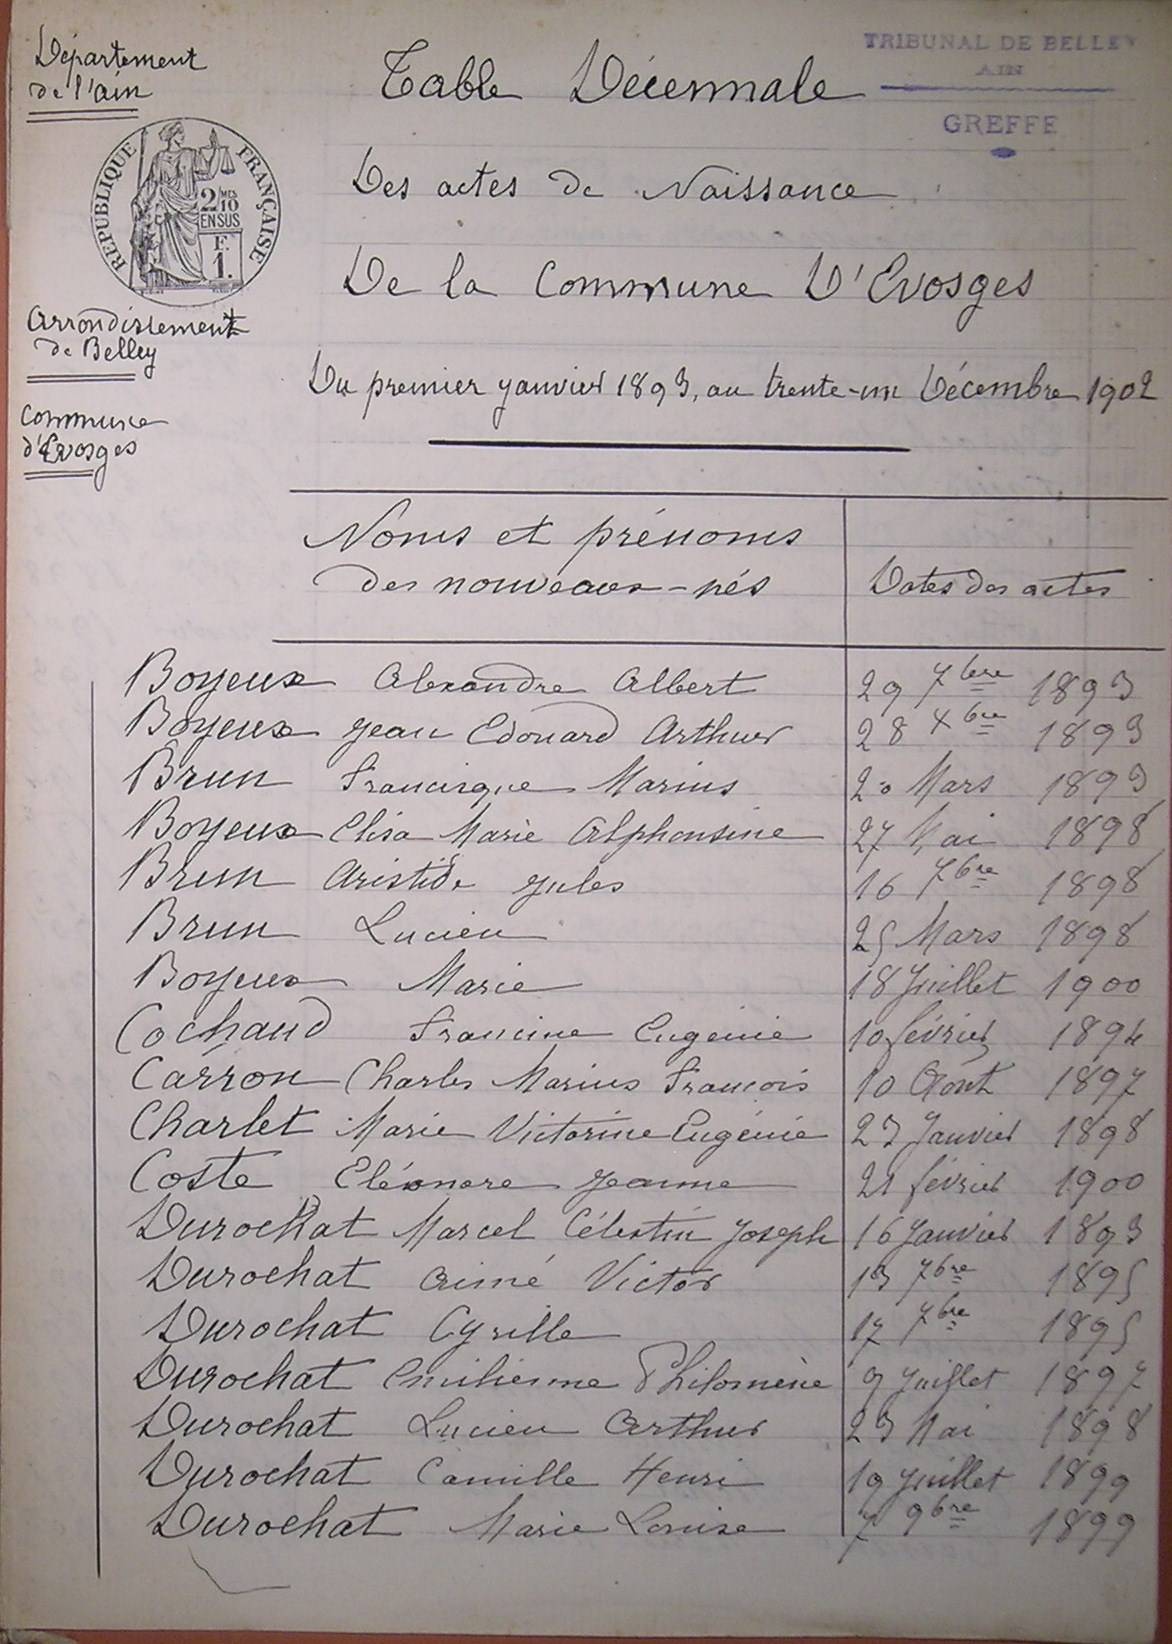 Département
de l'ain
TRIBUNAL DE BELLEY
AIN
GREFFE
RÉPUBLIQUE FRANÇAISE
2/10 MES
EN SUS
F.
1.
Table Décennale
Des actes de Naissance
De la Commune D'Evosges
Arrondissement
de Belley
Commune
d'Evosges
Du premier janvier 1893, au trente-un Décembre 1902
Noms et prénoms
des nouveaux-nés
Dates des actes
Boyeux Alexandre Albert 29 7bre 1893
Boyeux Jean Edouard Arthur 28 Xbre 1893
Brun Francisque Marius 20 Mars 1893
Boyeux Elisa Marie Alphonsine 27 Mai 1898
Brun Aristide Jules 16 7bre 1898
Brun Lucien 25 Mars 1898
Boyeux Marie 18 Juillet 1900
Cochaud Francine Eugénie 10 février 1894
Carron Charles Marius François 10 Août 1897
Charlet Marie Victorine Eugénie 23 Janvier 1898
Coste Eléonore Jeanne 21 février 1900
Durochat Marcel Célestin Joseph 16 Janvier 1893
Durochat Aimé Victor 13 7bre 1895
Durochat Cyrille 17 7bre 1895
Durochat Emilienne Philomène 9 Juillet 1897
Durochat Lucien Arthur 23 Mai 1898
Durochat Camille Henri 19 Juillet 1899
Durochat Marie Louise 7 9bre 1899